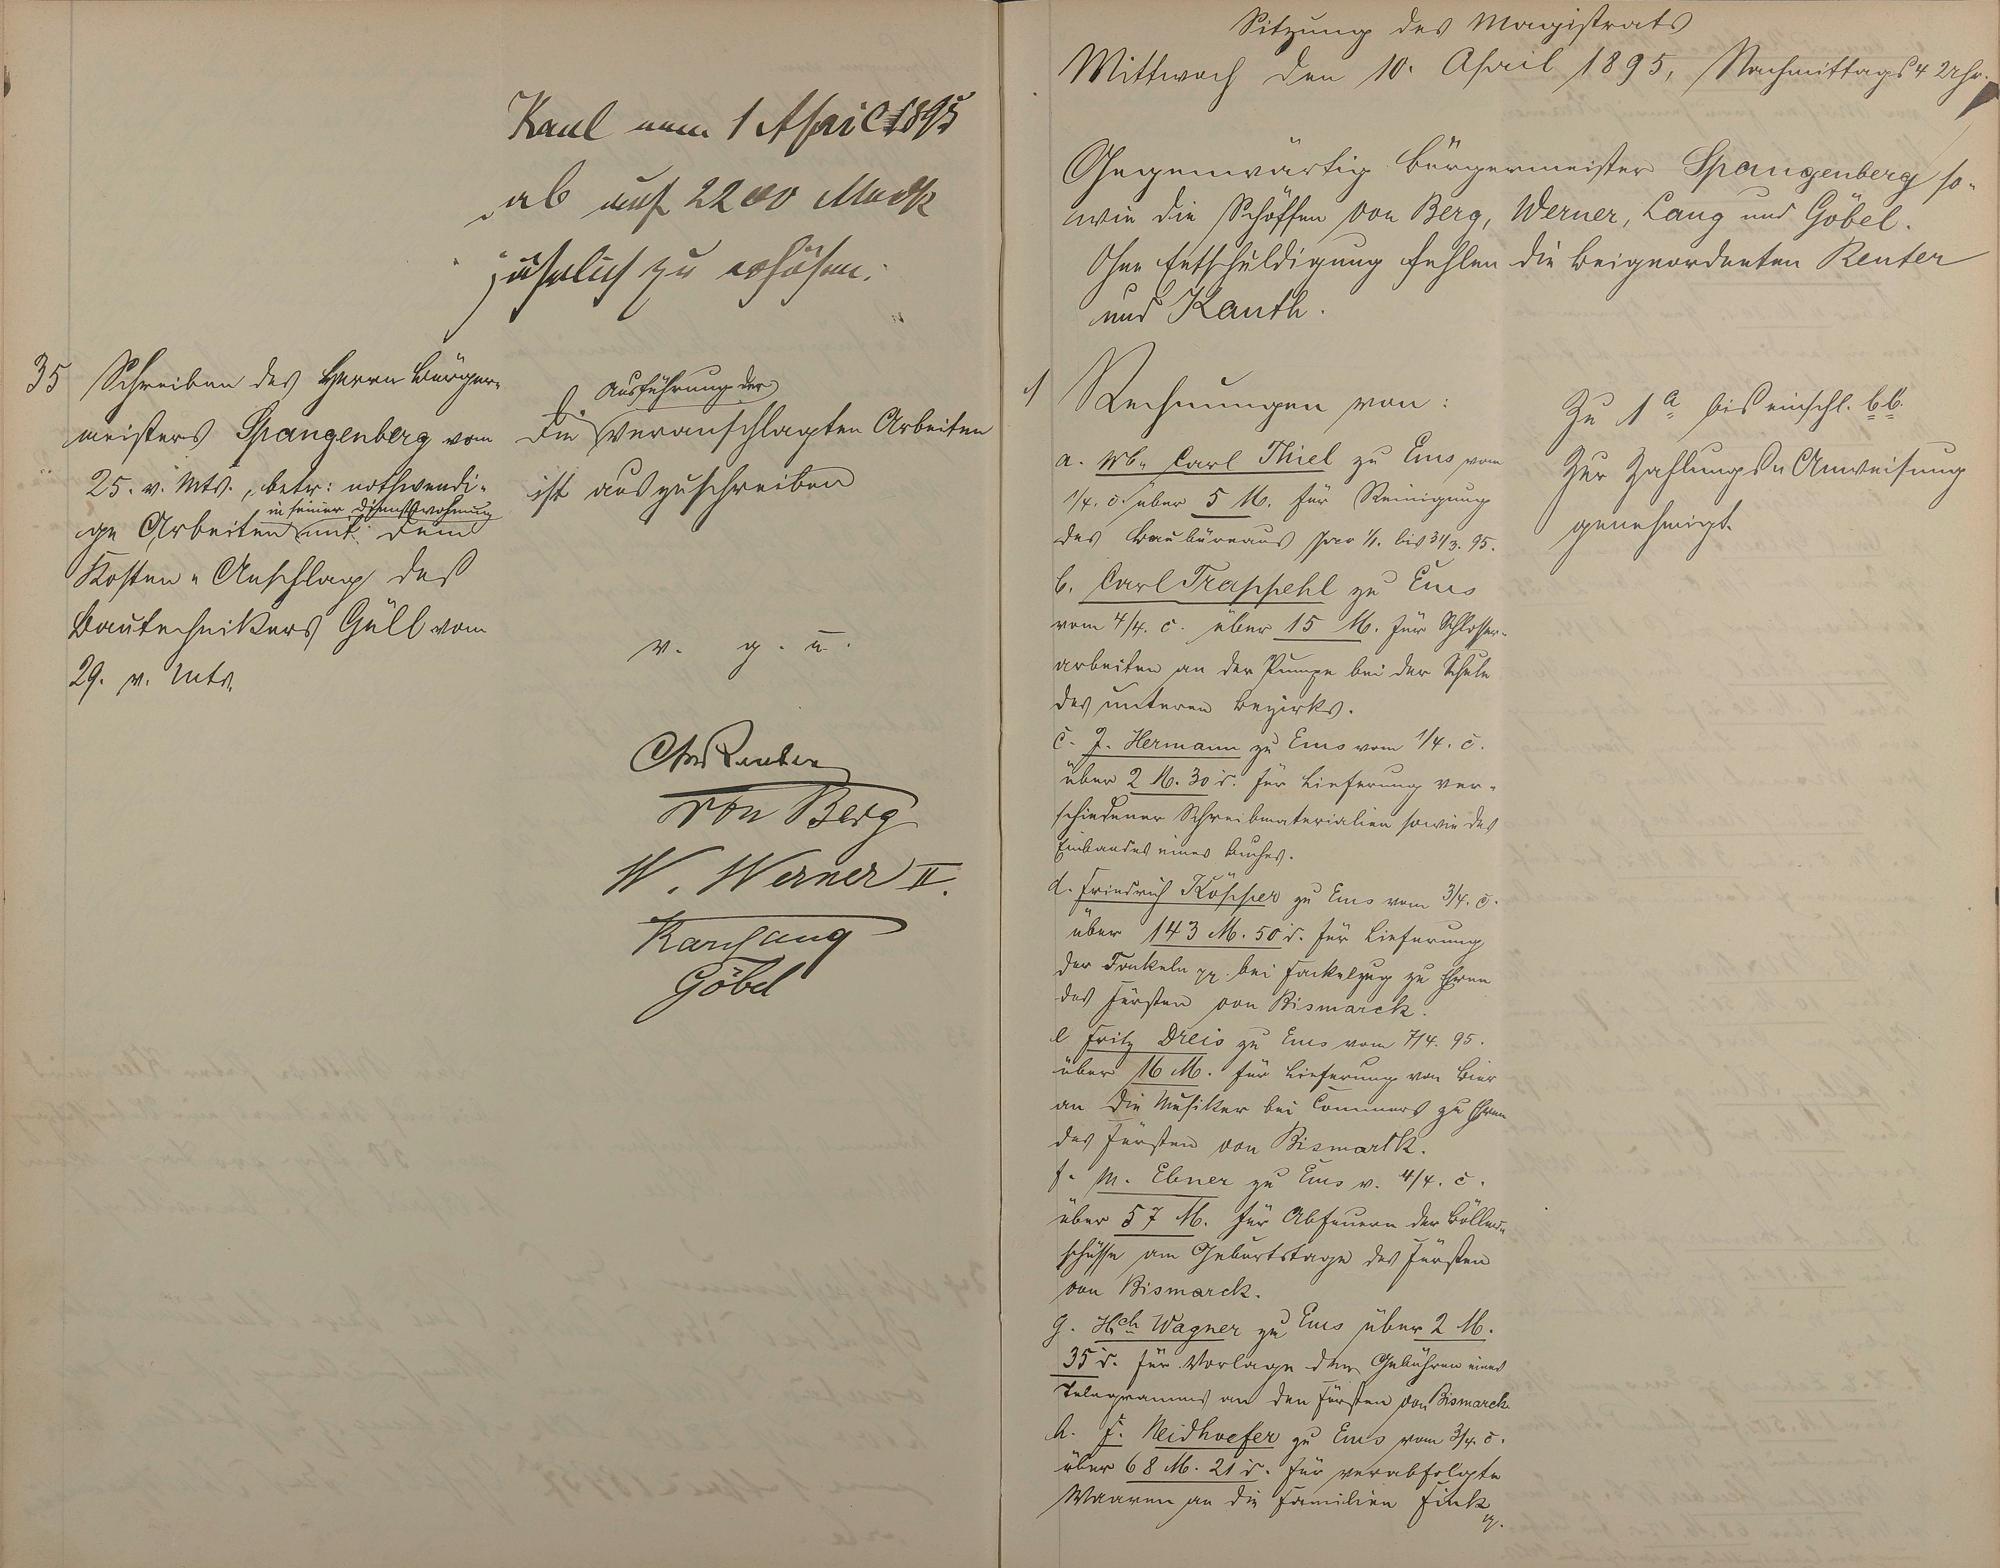 Kaul vom 1 April 1895
ab auf 2200 Mark
jährlich zu erhöhen.
35 Schreiben des Herrn Bürger-
meisters Spangenberg vom
25. v. Mts., betr: nothwendi-
ge Arbeiten in seiner Dienstwohnung mit dem
Kosten-Anschlag des
Bautechnikers Güll vom
29. v. Mts.
Die Ausführung der veranschlagten Arbeiten
ist auszuschreiben
v. g. u.
von Berg
W. Werner II.
Karl Lang
Göbel
Sitzung des Magistrats
Mittwoch den 10. April 1895, Nachmittags 4 Uhr.
Gegenwärtig Bürgermeister Spangenberg so-
wie die Schöffen von Berg, Werner, Lang und Göbel.
Ohne Entschuldigung fehlen die Beigeordneten Reuter
und Kauth.
1) Rechnungen von:
a. Wb. Carl Thiel zu Ems vom
1/4. c. über 5 M. für Reinigung
des Baubüreaus pro 1/1. bis 31/3. 95.
b. Carl Trappehl zu Ems
vom 4/4. c. über 15 M. für Schlosser-
arbeiten an der Pumpe bei der Schule
des unteren Bezirks.
c. J. Hermann zu Ems vom 1/4. c.
über 2 M. 30 d. für Lieferung ver-
schiedener Schreibmaterialien sowie des
Einbandes eines Buches.
d. Friedrich Köpper zu Ems vom 3/4. c.
über 143 M. 50 d. für Lieferung
der Fackeln pp. bei Fackelzug zu Ehren
des Fürsten von Bismarck.
e Fritz Dreis zu Ems vom 7/4. 95.
über 16 M. für Lieferung von Bier
an die Musiker bei Commers zu Ehren
des Fürsten von Bismarck.
f. M. Ebner zu Ems v. 4/4. c.
über 57 M. für Abfeuern der Böller-
schüsse am Geburtstage des Fürsten
von Bismarck.
g. Hch Wagner zu Ems über 2 M.
35 d. für Vorlage der Gebühren eines
Telegramms an den Fürsten von Bismarck
h. F. Neidhoefer zu Ems vom 3/4. c.
über 68 M. 21 d. für verabfolgte
Waaren an die Familien Fink
pp.
Zu 1 a bis einschl. bb.
Zur Zahlungs-Anweisung
genehmigt.